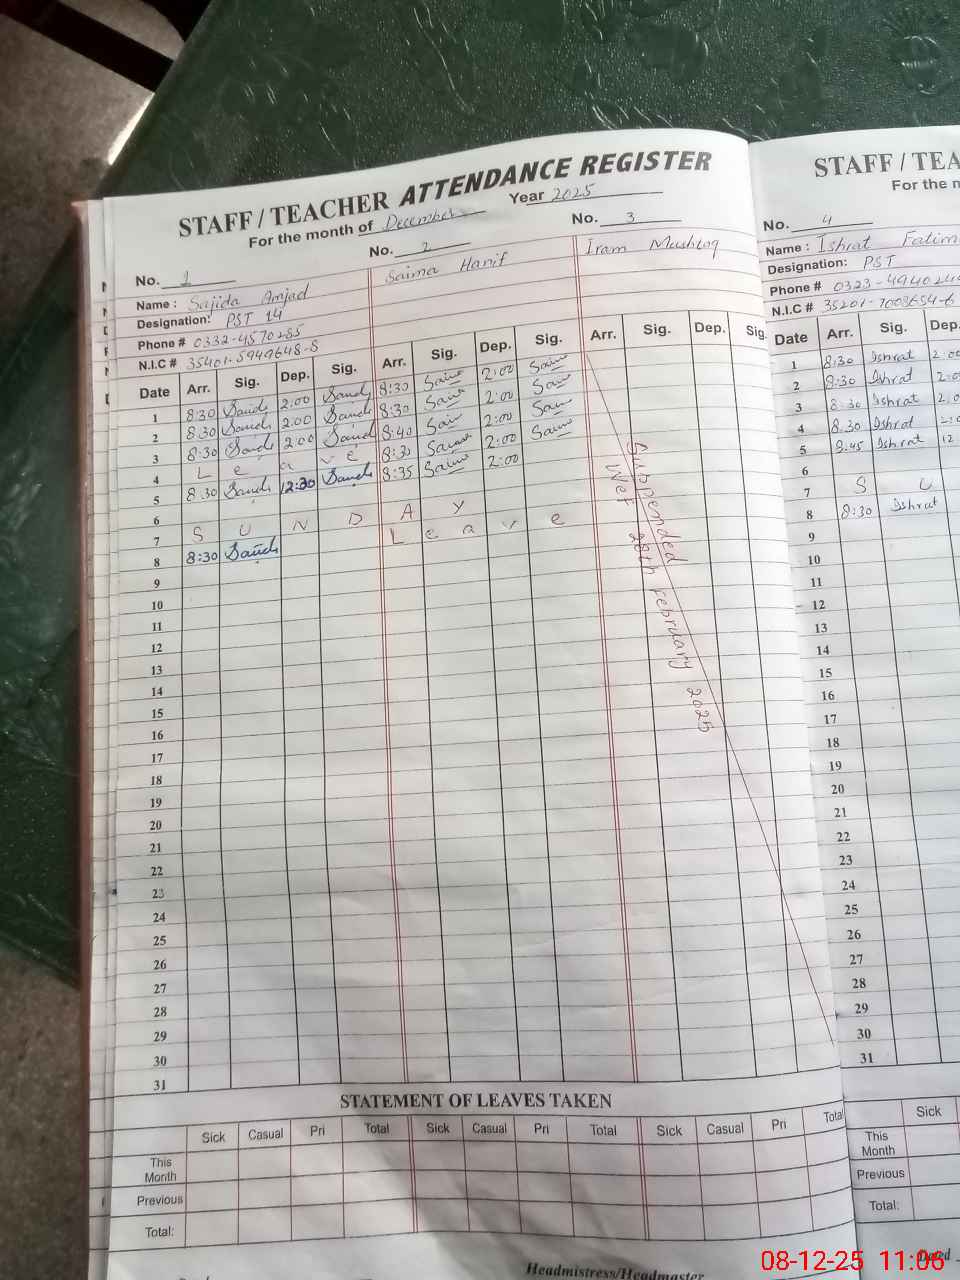 STAFF / TEACHER ATTENDANCE REGISTER
For the month of December Year 2025
No. 1 No. 2 No. 3
Name : Sajida Amjad Saima Hanif Iram Mushtaq
Designation: PST 14
Phone # 0332-4570285
N.I.C # 35401-5949648-8
Date Arr. Sig. Dep. Sig. Arr. Sig. Dep. Sig. Arr. Sig. Dep. Sig.
1 8:30 2:00 8:30 2:00
2 8:30 2:00 8:30 2:00
3 8:30 2:00 8:40 2:00
4 Leave 8:30 2:00
5 8:30 12:30 8:35 2:00
6
7 SUNDAY
8 8:30 Leave
9
10
11
12
13
14
15
16
17
18
19
20
21
22
23
24
25
26
27
28
29
30
31
Suspended
Wef 28th february 2025
STATEMENT OF LEAVES TAKEN
Sick Casual Pri Total Sick Casual Pri Total Sick Casual Pri Total
This Month
Previous
Total:
Headmistress/Headmaster
STAFF / TEA
For the m
No. 4
Name : Ishrat Fatim
Designation: PST
Phone # 0323-4940244
N.I.C # 35201-7003654-6
Date Arr. Sig. Dep.
1 8:30 Ishrat 2:00
2 8:30 Ishrat 2:0
3 8:30 Ishrat 2:0
4 8:30 Ishrat 2:0
5 8:45 Ishrat 12
6
7 S U
8 8:30 Ishrat
9
10
11
12
13
14
15
16
17
18
19
20
21
22
23
24
25
26
27
28
29
30
31
Sick
This Month
Previous
Total:
Dated
08-12-25 11:06